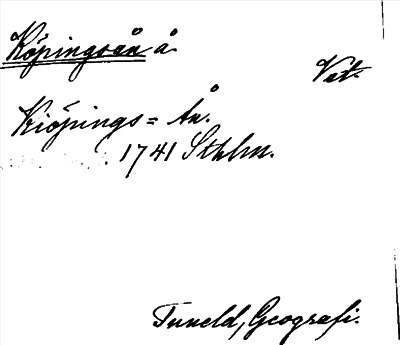 Köpingsån å.
Vstm.
Kiöpings=Ån.
1741 Sthlm.
Tuneld, Geografi.